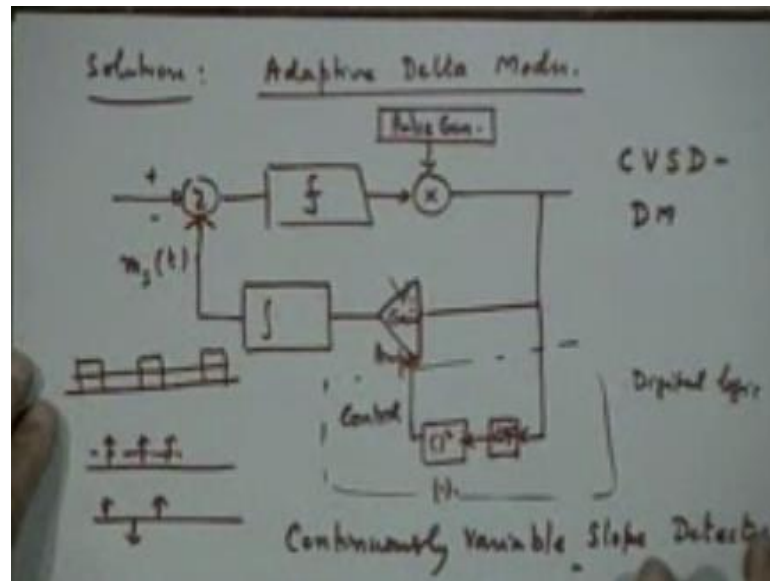 Solution: Adaptive Delta Modn.
Pulse Gen.
CVSD-
DM
+
-
Σ
×
m_s(t)
∫
Control
( )²
LPF
Digital logic
Continuously Variable Slope Detector